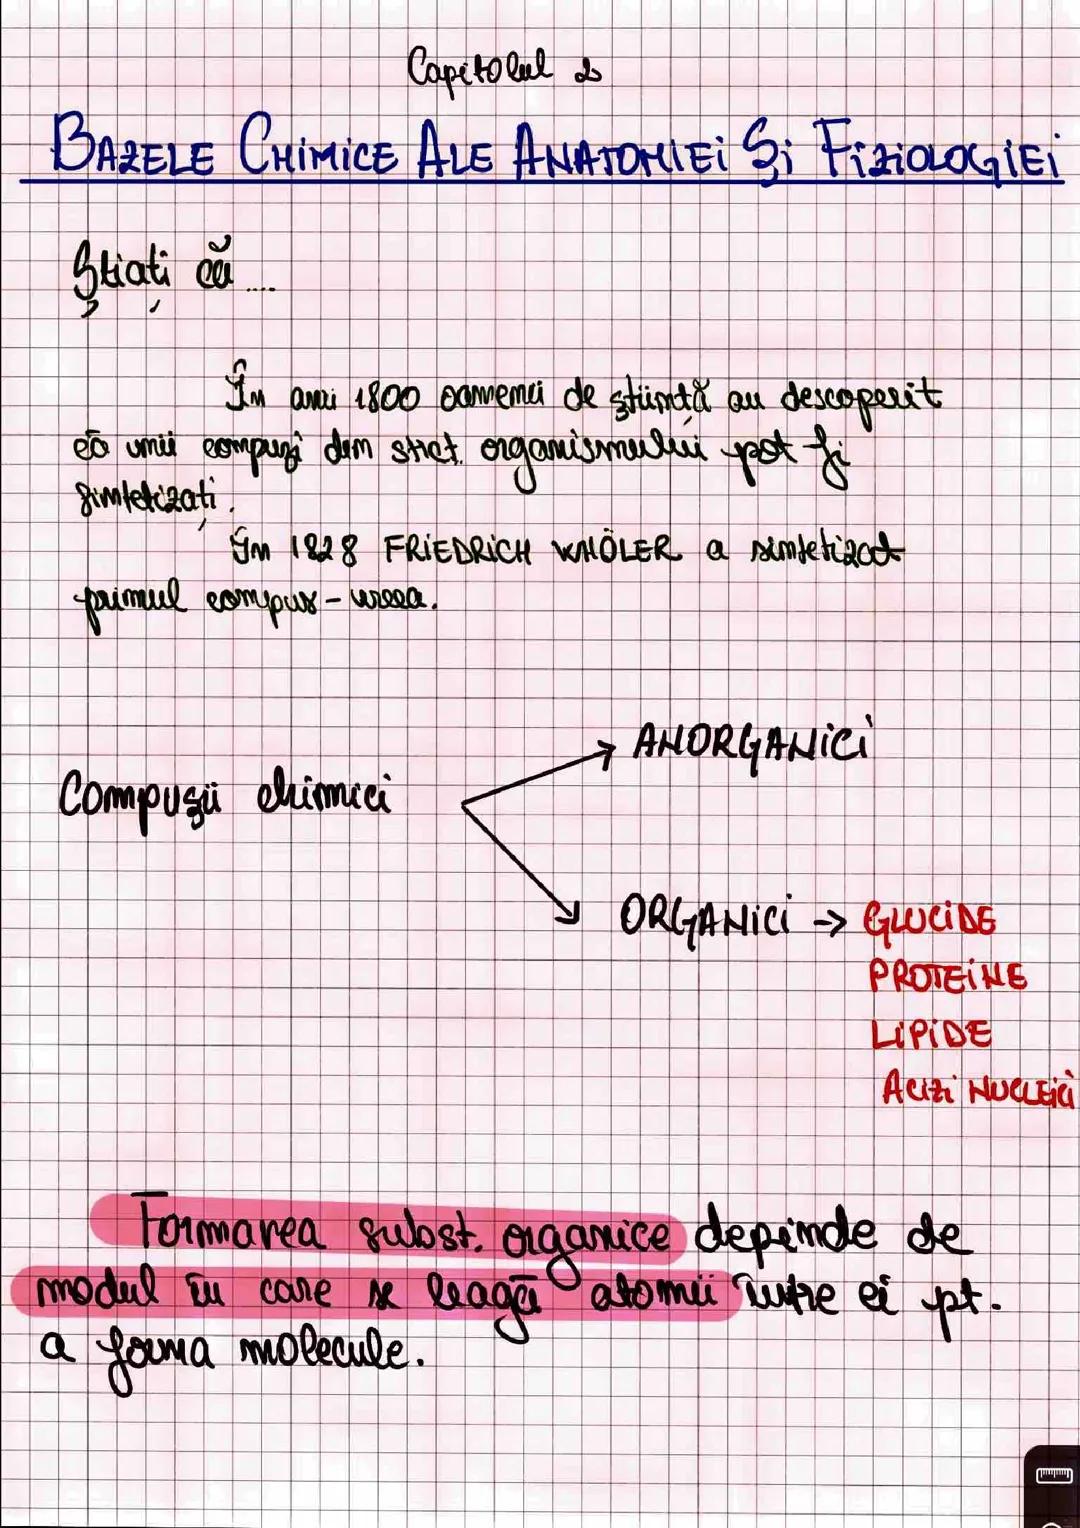 Capitolul 2
BAZELE CHIMICE ALE ANATOMIEI ȘI FIZIOLOGIEI
Știați că ....
În anii 1800 oamenii de știință au descoperit
că unii compuși din strct. organismului pot fi
sintetizați.
În 1828 FRIEDRICH WHÖLER a sintetizat
primul compus - ureea.
Compușii chimici
ANORGANICI
ORGANICI → GLUCIDE
PROTEINE
LIPIDE
ACIZI NUCLEICI
Formarea subst. organice depinde de
modul în care se leagă atomii între ei pt.
a forma molecule.